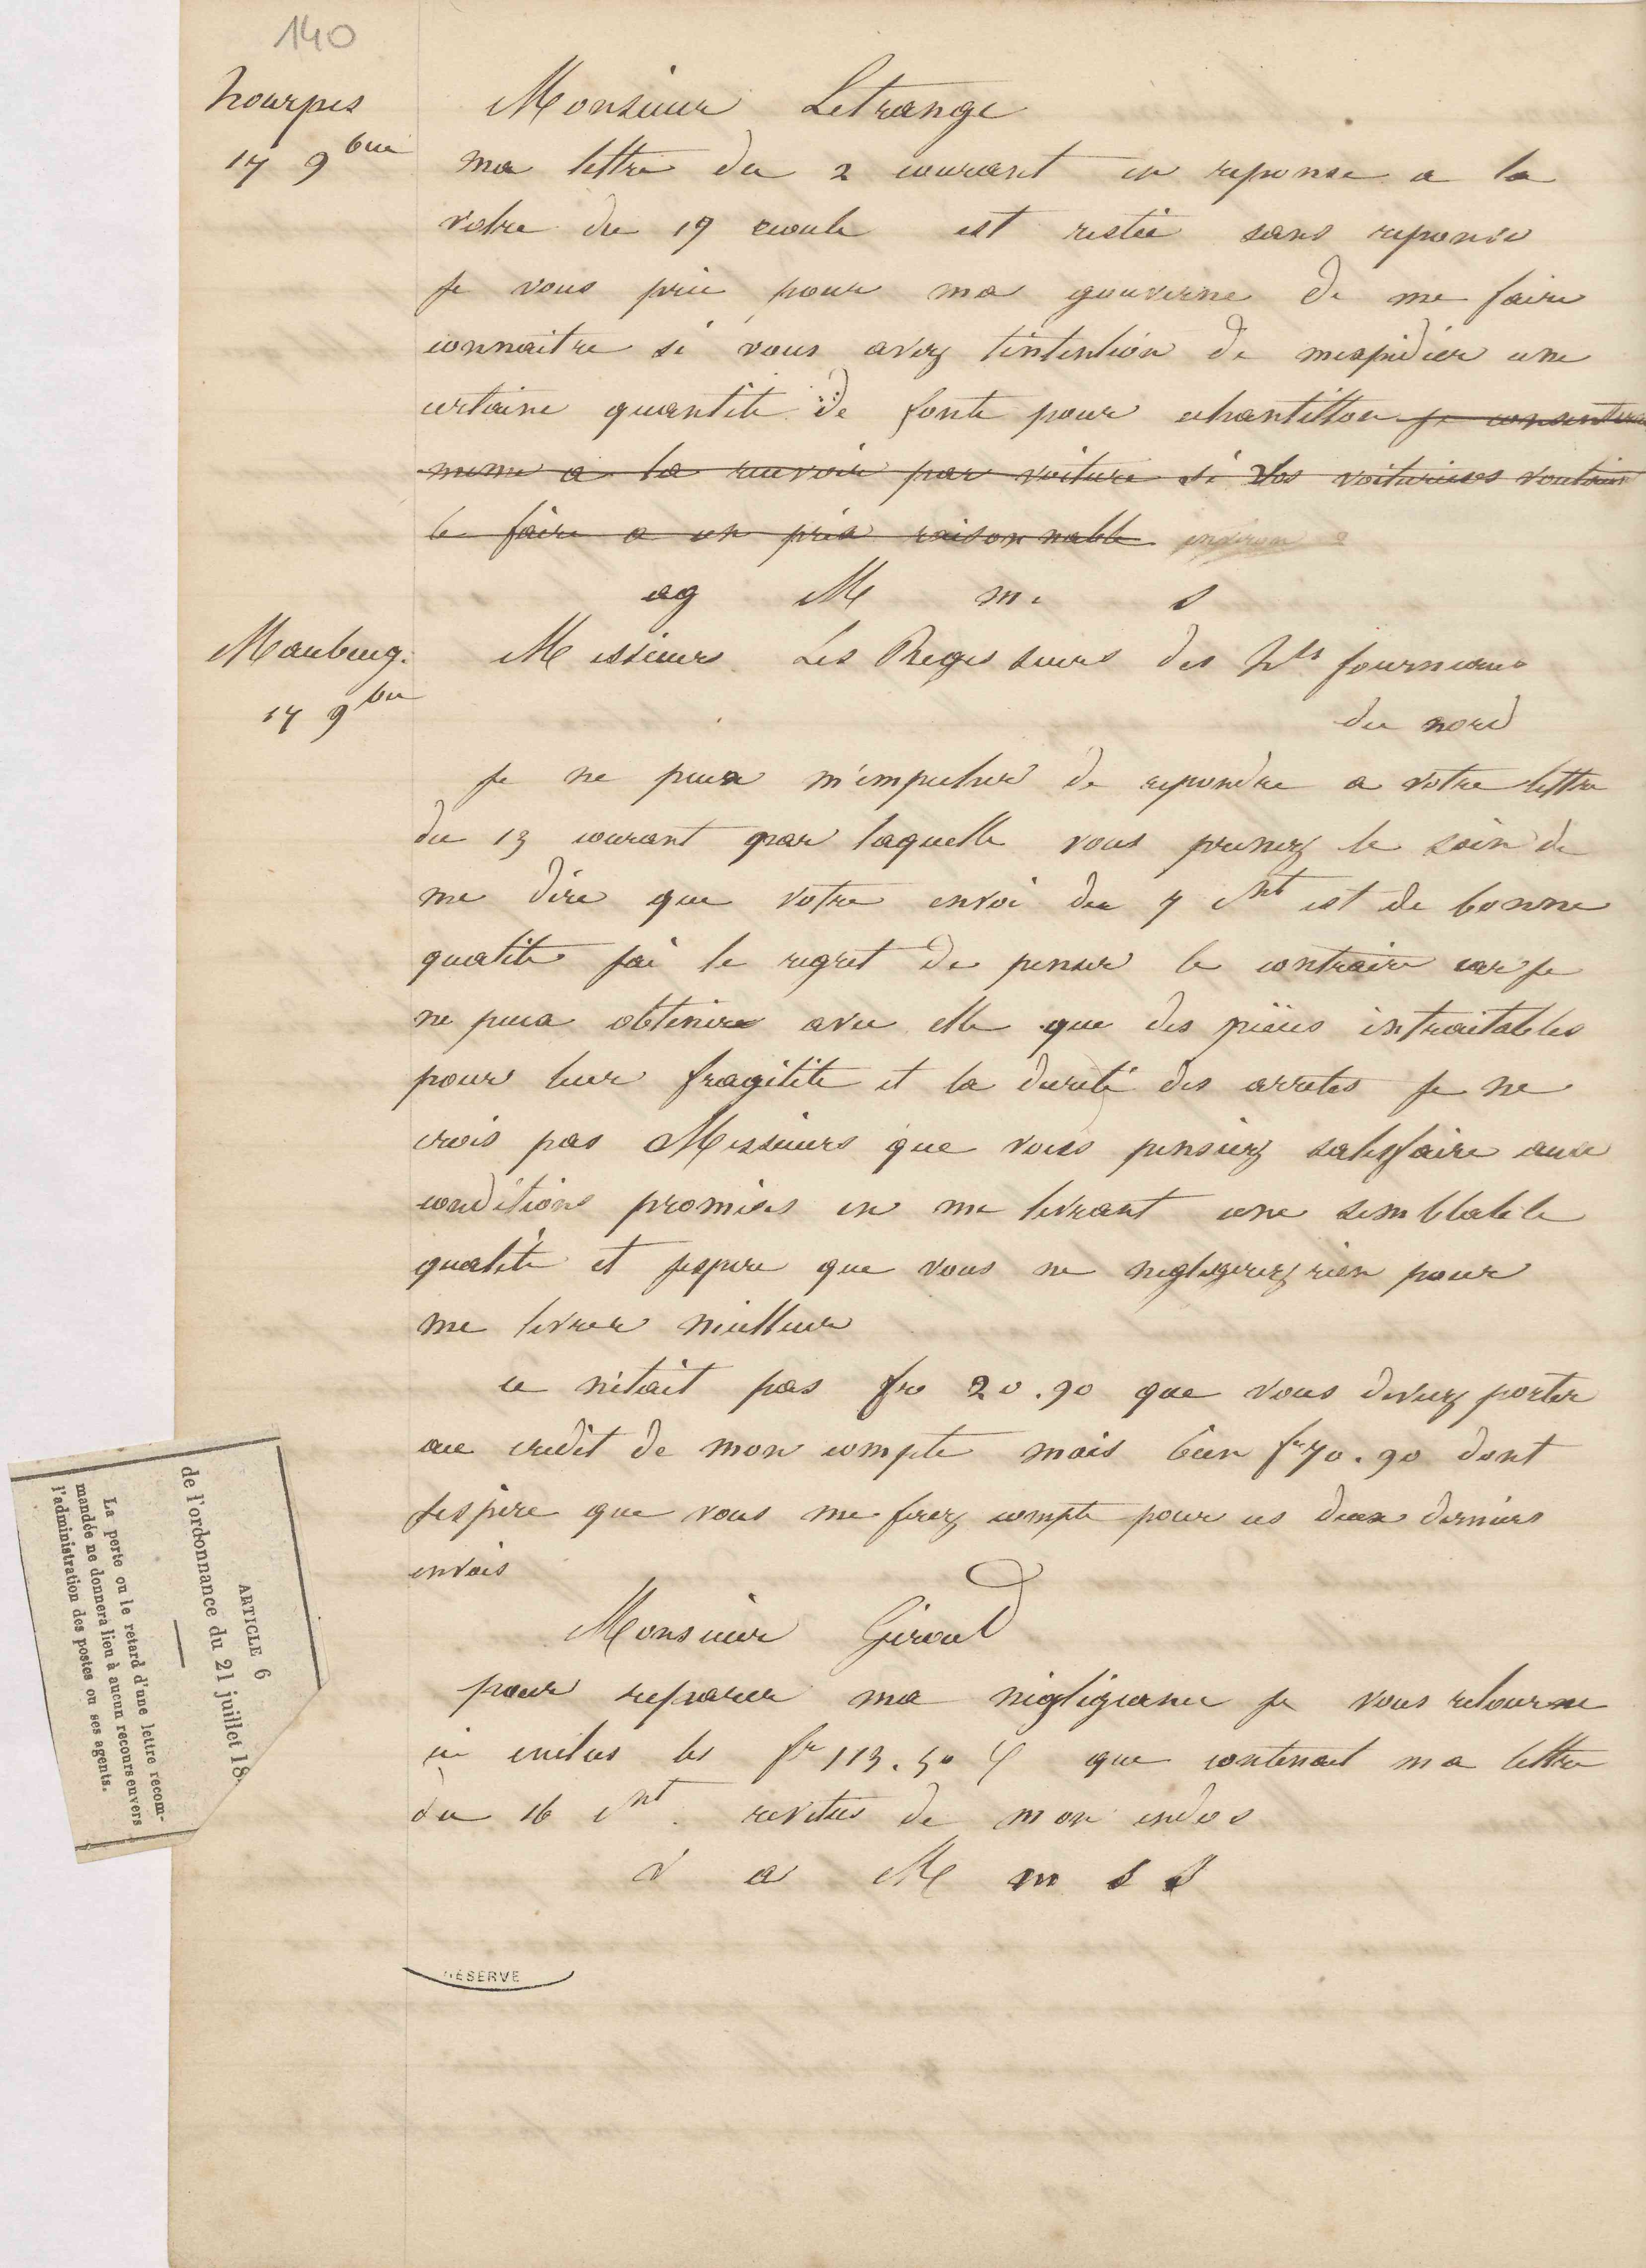 140
hourpes
17 9bre
Monsieur Letrange
ma lettre du 2 courant en reponse a la
votre du 19 ecoule est restée sans reponse
je vous prie pour ma gouverne de me faire
connaitre si vous avez l'intention de mexpidier une
certaine quantite de fonte pour echantillon je consentirai
meme a la recevoir par voiture si vos voituriers voulaient
le faire a un prix raisonnable
ag M m. s
Maubeug.
17 9bre
Messieurs Les Regisseurs des hts fourneaux
du nord
Je ne peux m'empecher de repondre a votre lettre
du 13 courant par laquelle vous prenez le soin de
me dire que votre envoi du 7 ct est de bonne
qualite jai le regret de penser le contraire car je
ne peux obtenir avec elle que des pièces intraitables
pour leur fragilite et la dureté des arretes je ne
crois pas Messieurs que vous pensiez satisfaire aux
conditions promises en me livrant une semblable
qualité et jespere que vous ne negligerez rien pour
me livrer meilleur
ce n'etait pas fr 20.90 que vous deviez porter
au credit de mon compte mais bien fr 70.90 dont
jespère que vous me ferez compte pour ces deux derniers
envois
Monsieur Giroud
pour reparer ma negligeance je vous retourne
ci inclus les fr 113.50 que contenait ma lettre
du 16 ct revetus de mon endos
v a M m s s
RÉSERVE
ARTICLE 6
de l'ordonnance du 21 juillet 18
La perte ou le retard d'une lettre recom-
mandée ne donnera lieu à aucun recours envers
l'administration des postes ou ses agents.